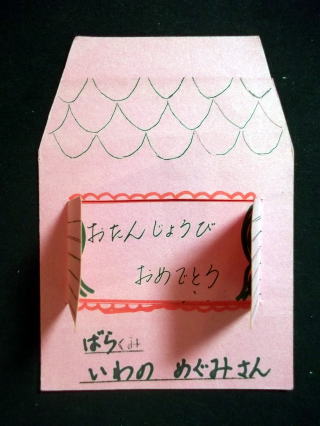 おたんじょうび
おめでとう
ばらくみ
いわの めぐみさん